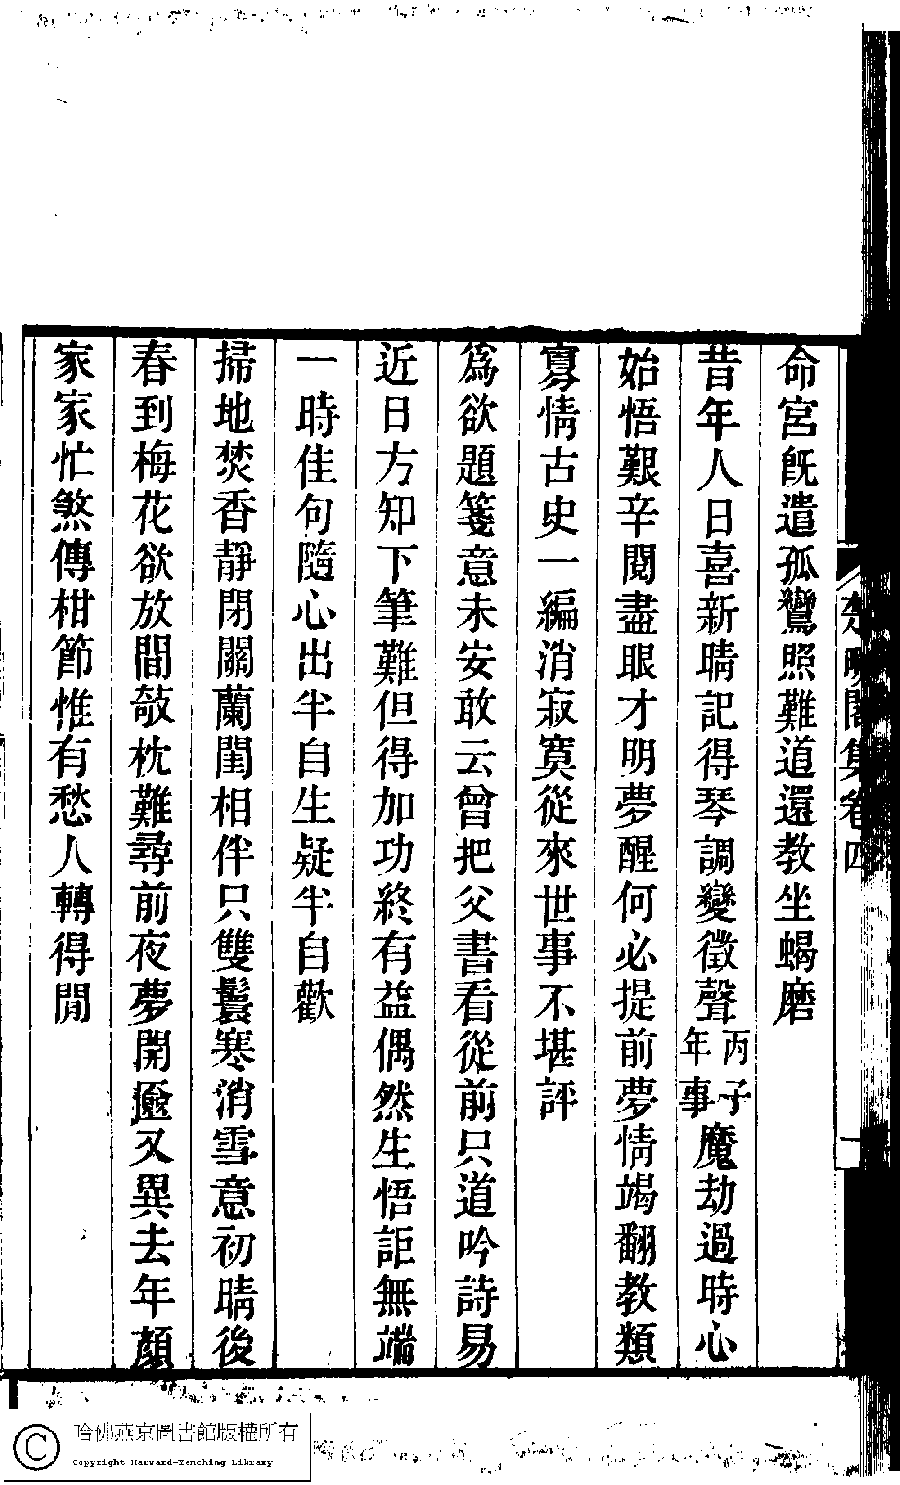 命宮旣遣孤鸞照難道還教坐蝎磨
昔年人日喜新晴記得琴調變徵聲丙子年事魔劫過時心
始悟艱辛閱盡眼才明夢醒何必提前夢情竭翻教類
寡情古史一編消寂寞從來世事不堪評
爲欲題箋意未安敢云曾把父書看從前只道吟詩易
近日方知下筆難但得加功終有益偶然生悟詎無端
一時佳句隨心出半自生疑半自歡
掃地焚香靜閉關蘭閨相伴只雙鬟寒消雪意初晴後
春到梅花欲放間敧枕難尋前夜夢開奩又異去年顏
家家忙煞傳柑節惟有愁人轉得閒
閣集卷四
哈佛燕京圖書館版權所有
Copyright Harvard-Yenching Library